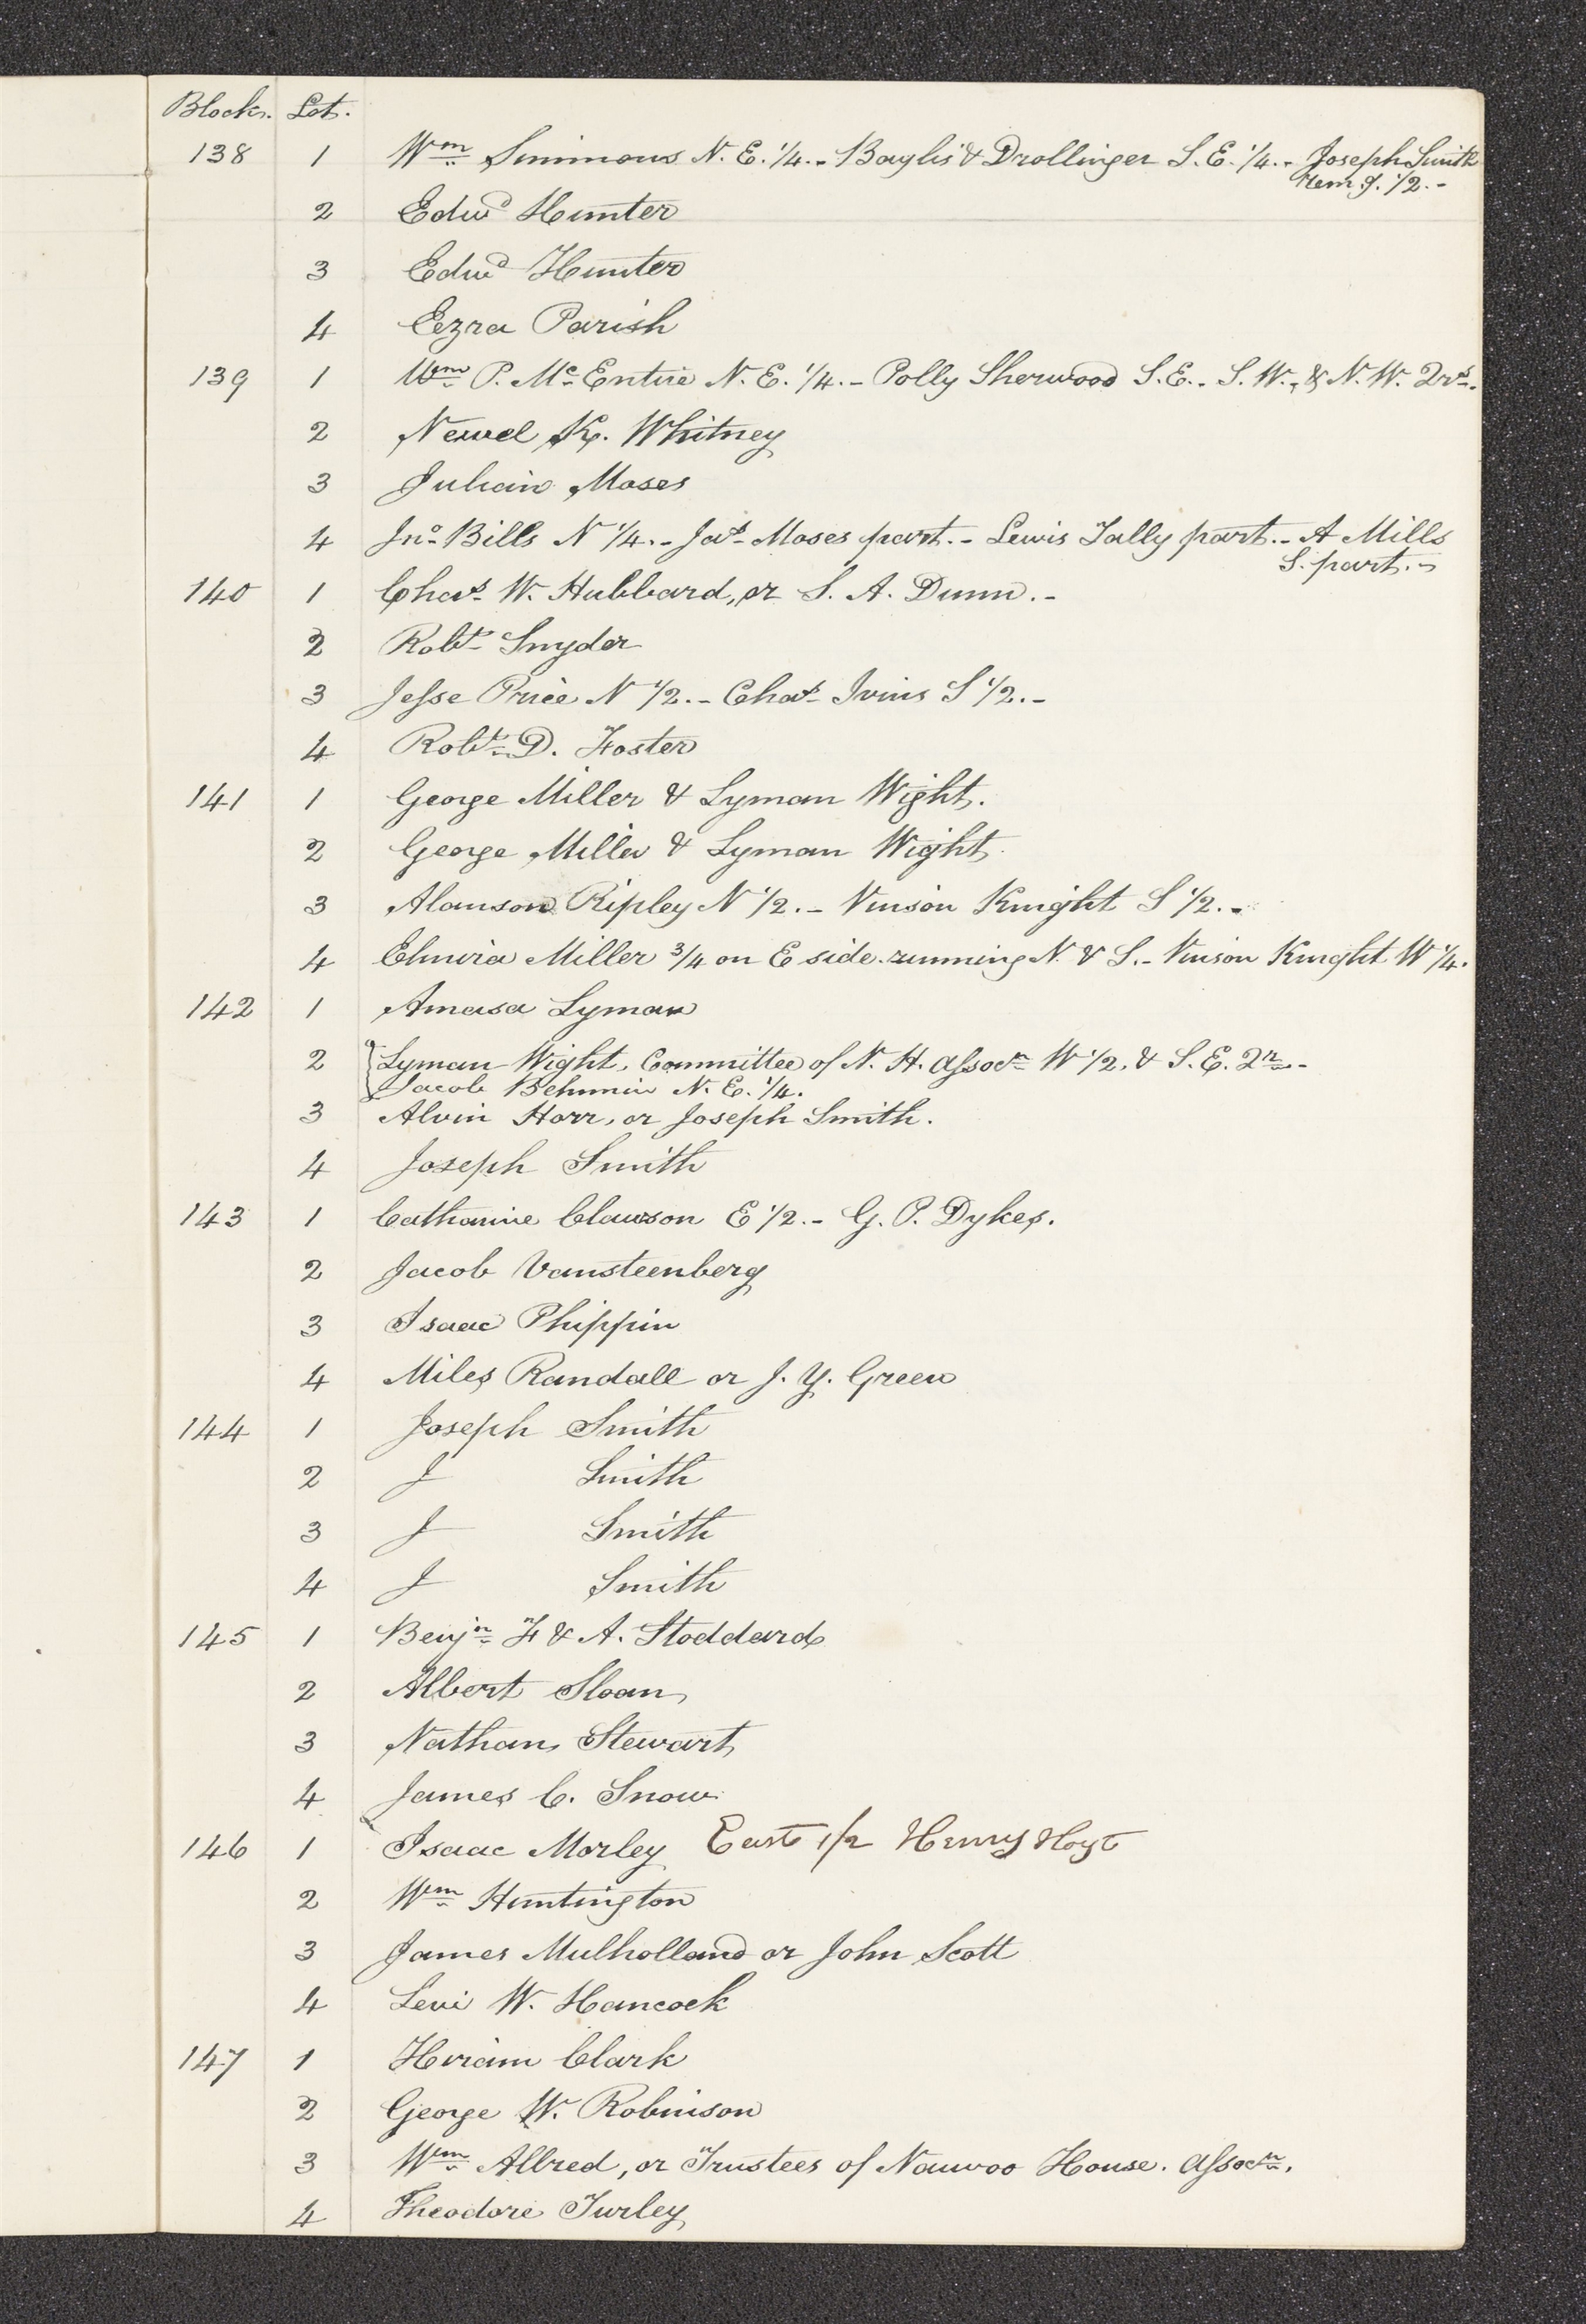 Block. Lot.
138 1 Wm Simmons N. E. 1/4. - Baylis & Drollinger S. E. 1/4. - Joseph Smith
rem.g. 1/2. -
2 Edwd Hunter
3 Edwd Hunter
4 Ezra Parish
139 1 Wm P. Mc Entire N. E. 1/4. - Polly Sherwood S. E. - S. W., & N. W. Qrs.
2 Newel K. Whitney
3 Julian Moses
4 Jno Bills N 1/4. - Jas Moses part. - Lewis Tally part. - A Mills
S. part. -
140 1 Chas W. Hubbard, or S. A. Dunn. -
2 Robt Snyder
3 Jesse Price N 1/2. - Chas Ivins S 1/2. -
4 Robt D. Foster
141 1 George Miller & Lyman Wight.
2 George Miller & Lyman Wight.
3 Alanson Ripley N 1/2. - Vinson Knight S 1/2. -
4 Elmira Miller 3/4 on E side running N. & S. - Vinson Knight W 1/4.
142 1 Amasa Lyman
2 Lyman Wight, Committee of N. H. Assocn W 1/2. & S. E. Qr. -
Jacob Behunnin N. E. 1/4.
3 Alvin Horr, or Joseph Smith.
4 Joseph Smith
143 1 Catharine Clawson E 1/2. - G. P. Dykes.
2 Jacob Vansteenberg
3 Isaac Phippin
4 Miles Randall or J. Y. Green
144 1 Joseph Smith
2 J Smith
3 J Smith
4 J Smith
145 1 Benjn F & A. Stoddard
2 Albert Sloan
3 Nathan Stewart
4 James C. Snow
146 1 Isaac Morley East 1/2 Henry Hoyt
2 Wm Huntington
3 James Mulholland or John Scott
4 Levi W. Hancock
147 1 Hiriam Clark
2 George W. Robinson
3 Wm Allred, or Trustees of Nauvoo House. Assocn.
4 Theodore Turley